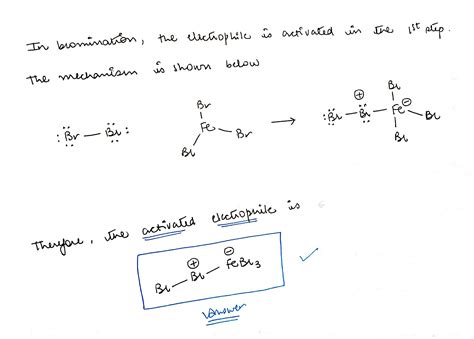 In bromination, the electrophile is activated in the 1st step.
The mechanism is shown below
:Br — Br: Br Fe Br Br → :Br — Br ⊕ — Fe ⊖ Br Br Br
Therefore, the activated electrophile is
Br — Br ⊕ — FeBr3 ⊖ ✓
Answer